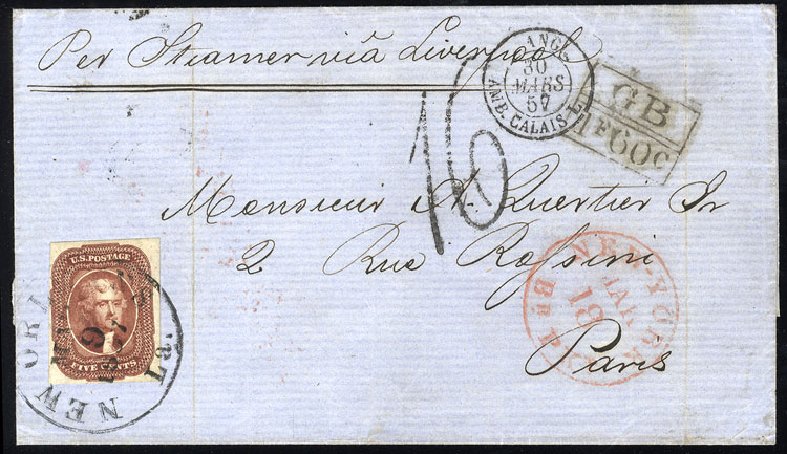 Per Steamer via Liverpool
ANGL.
30
MARS
57
AMB. CALAIS L
GB
1F60c
16
Monsieur A. Quertier Sr
2 Rue Rossini
Paris
U.S. POSTAGE
FIVE CENTS
NEW ORL
La.
9
NEW-YORK
MAR
18
Br